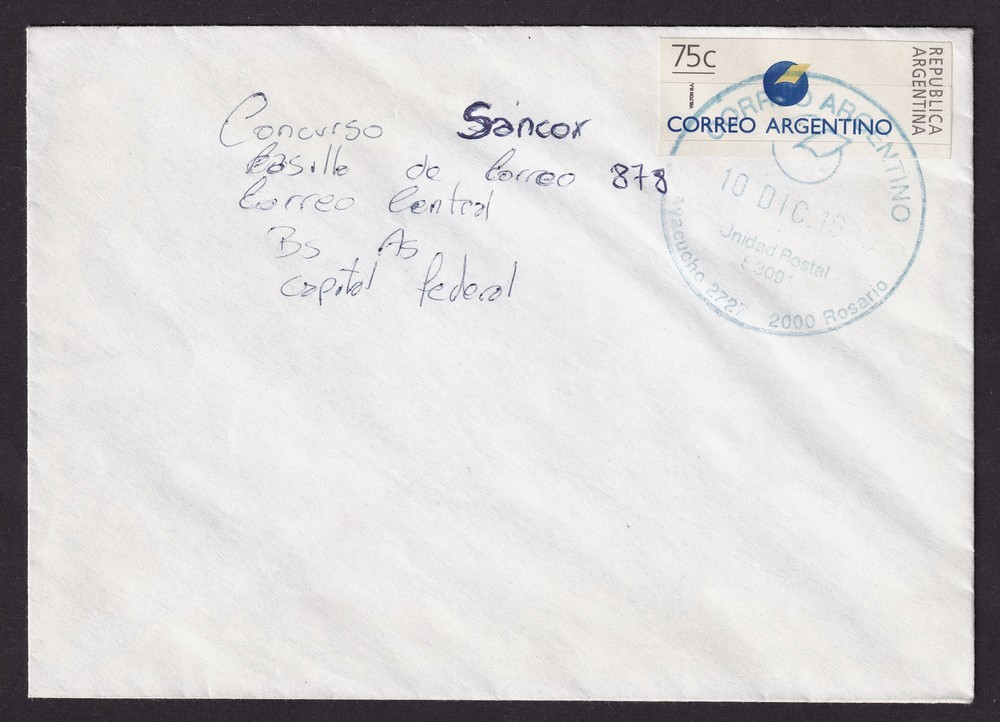 75c
REPUBLICA
ARGENTINA
CORREO ARGENTINO
Concurso Sancor
Casilla de Correo 878
Correo Central
Bs As
Capital Federal
CORREO ARGENTINO
10 DIC.
Unidad Postal
Ayacucho 2727 2000 Rosario